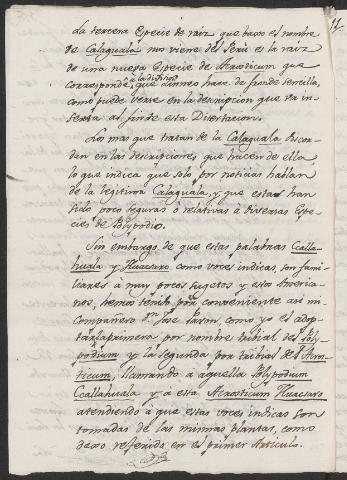 11.
La tercera Especie de raiz que baxo el nombre
de Calaguala nos viene del Perú es la raiz
de una nueva Especie de Acrosticum que
corresponde à la division que Linneo hace de fronde sencilla,
como puede verse en la descripcion que va in-
serta al fin de esta Disertacion.
Los mas que tratan de la Calaguala discor-
dan en las descripciones que hacen de ella
lo que indica que solo por noticias hablan
de la legitima Calaguala, y que estas han
sido poco seguras ò relativas à diversas Espe-
cies de Polypodio.
Sin embargo de que estas palabras Ccalla-
huala y Huacsaro como voces indicas, son fami-
liares à muy pocos sugetos y estos America-
nos, hemos tenido por conveniente asi mi
compañero Dn. Jose Pavon, como yo el adop-
tar la primera por nombre tribial del Poly-
podium y la segunda por tribial del Acros-
ticum, llamando à aquella Polypodium
Ccallahuala y à esta Acrosticum Huacsaro
atendiendo à que estas voces indicas son
tomadas de las mismas plantas, como
dexo referido en el primer Articulo.